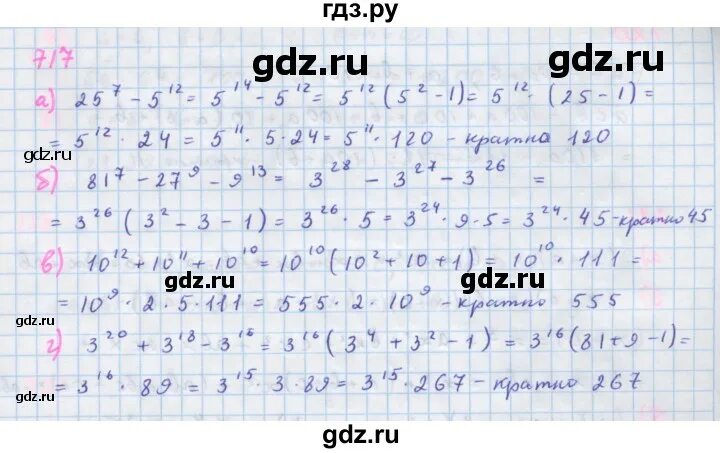 гдз.ру
717
gdz.ru gdz.ru
а) 25⁷ - 5¹² = 5¹⁴ - 5¹² = 5¹² (5² - 1) = 5¹² · (25 - 1) =
= 5¹² · 24 = 5¹¹ · 5 · 24 = 5¹¹ · 120 - кратно 120
gdz.ru
б) 81⁷ - 27⁹ - 9¹³ = 3²⁸ - 3²⁷ - 3²⁶ =
= 3²⁶ (3² - 3 - 1) = 3²⁶ · 5 = 3²⁴ · 9 · 5 = 3²⁴ · 45 - кратно 45
gdz.ru gdz.ru
в) 10¹² + 10¹¹ + 10¹⁰ = 10¹⁰ (10² + 10 + 1) = 10¹⁰ · 111 =
= 10⁹ · 2 · 5 · 111 = 555 · 2 · 10⁹ - кратно 555
gdz.ru
г) 3²⁰ + 3¹⁸ - 3¹⁶ = 3¹⁶ (3⁴ + 3² - 1) = 3¹⁶ (81 + 9 - 1) =
= 3¹⁶ · 89 = 3¹⁵ · 3 · 89 = 3¹⁵ · 267 - кратно 267
gdz.ru gdz.ru
gdz.ru